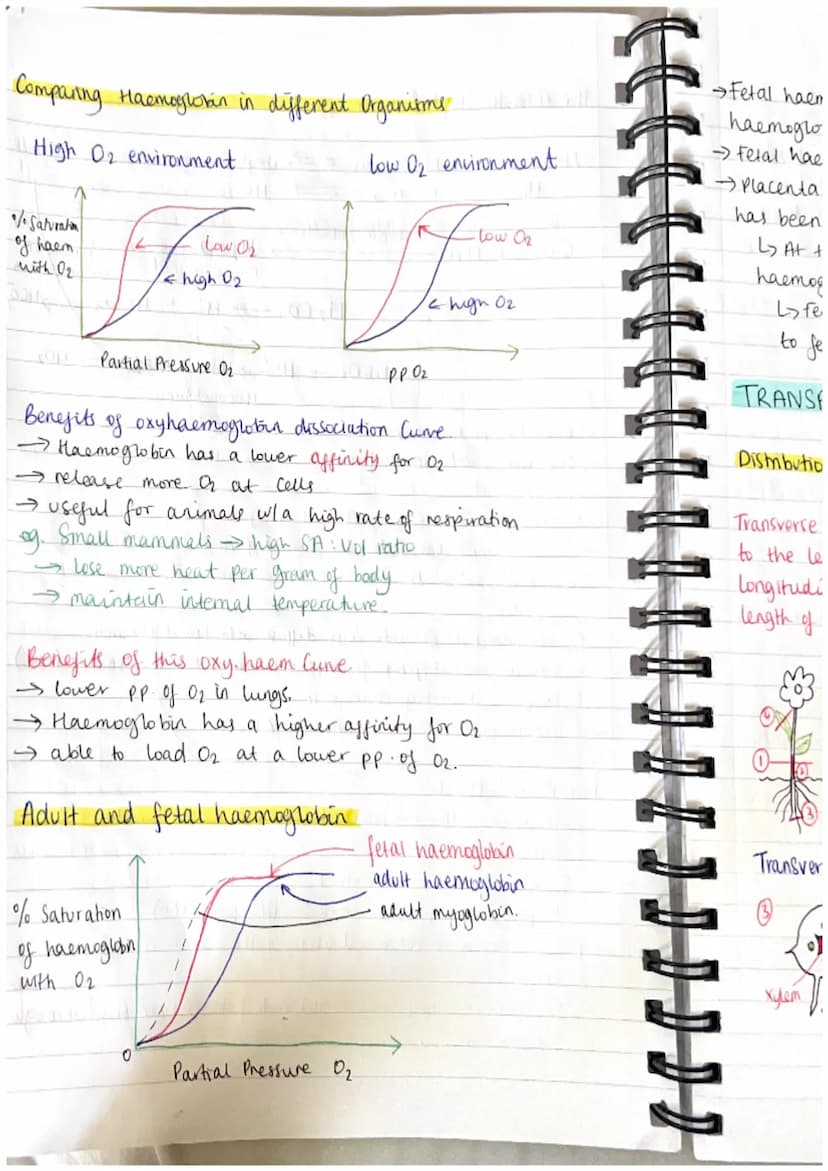 Comparing Haemoglobin in different Organisms
High O2 environment
low O2 environment
% Saturation
of haem
with O2
low O2
high O2
Partial Pressure O2
low O2
high O2
PP O2
Benefits of oxyhaemoglobin dissociation Curve
→ Haemoglobin has a lower affinity for O2
→ release more O2 at cells
→ useful for animals w/a high rate of respiration
eg. Small mammals → high SA:Vol ratio
→ lose more heat per gram of body
→ maintain internal temperature.
Benefits of this oxy.haem Curve
→ lower pp. of O2 in lungs.
→ Haemoglobin has a higher affinity for O2
→ able to load O2 at a lower pp. of O2.
Adult and fetal haemoglobin
fetal haemoglobin
adult haemoglobin
adult myoglobin.
% Saturation
of haemoglobin
with O2
0
Partial Pressure O2
→ Fetal haem
haemoglo
→ Fetal hae
→ Placenta
has been
↳ At t
haemog
↳ fe
to fe
TRANSF
Distributio
Transverse
to the le
longitudi
length of
①
③
Transver
③
xylem